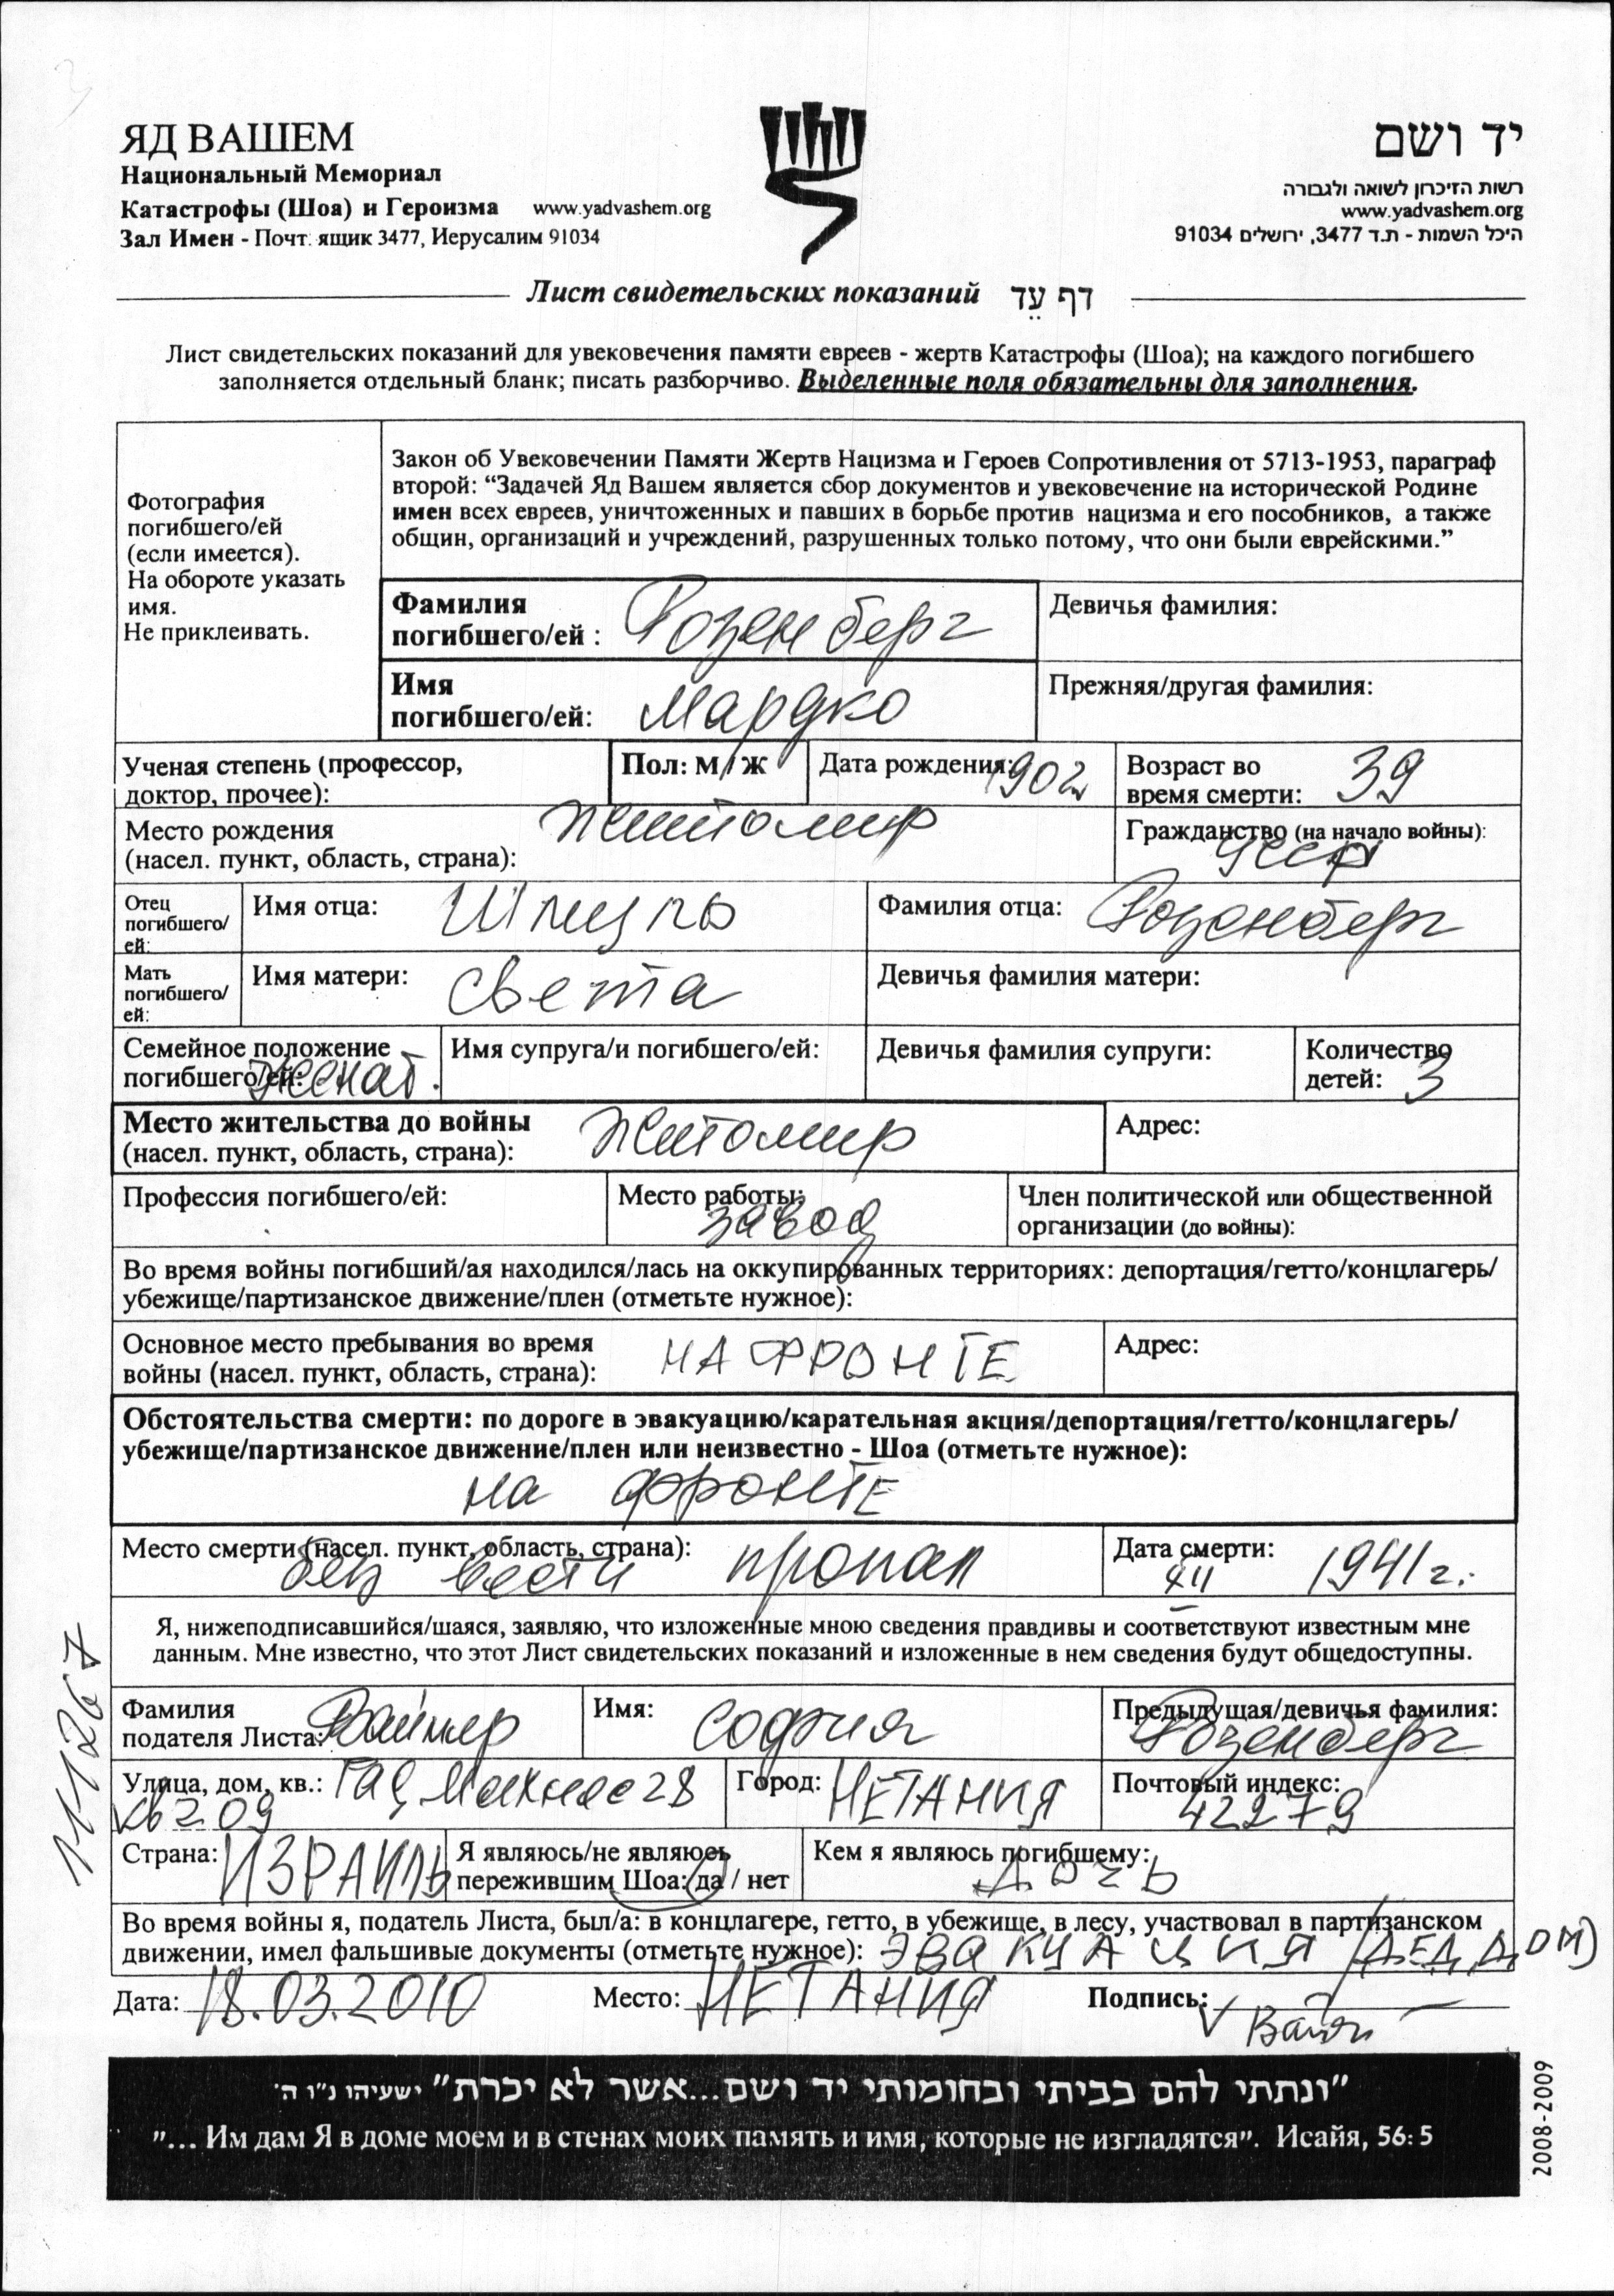 ЯД ВАШЕМ
Национальный Мемориал
Катастрофы (Шоа) и Героизма www.yadvashem.org
Зал Имен - Почт. ящик 3477, Иерусалим 91034
יד ושם
רשות הזיכרון לשואה ולגבורה
www.yadvashem.org
היכל השמות - ת.ד 3477, ירושלים 91034
Лист свидетельских показаний דף עֵד
Лист свидетельских показаний для увековечения памяти евреев - жертв Катастрофы (Шоа); на каждого погибшего
заполняется отдельный бланк; писать разборчиво. Выделенные поля обязательны для заполнения.
Фотография
погибшего/ей
(если имеется).
На обороте указать
имя.
Не приклеивать.
Закон об Увековечении Памяти Жертв Нацизма и Героев Сопротивления от 5713-1953, параграф
второй: “Задачей Яд Вашем является сбор документов и увековечение на исторической Родине
имен всех евреев, уничтоженных и павших в борьбе против нацизма и его пособников, а также
общин, организаций и учреждений, разрушенных только потому, что они были еврейскими.”
Фамилия
погибшего/ей : Розенберг
Девичья фамилия:
Имя
погибшего/ей: Мардко
Прежняя/другая фамилия:
Ученая степень (профессор,
доктор, прочее):
Пол: М / Ж
Дата рождения: 1902
Возраст во
время смерти: 39
Место рождения
(насел. пункт, область, страна): Житомир
Гражданство (на начало войны):
УССР
Отец
погибшего/
ей:
Имя отца:
Фамилия отца: Розенберг
Мать
погибшего/
ей:
Имя матери: Света
Девичья фамилия матери:
Семейное положение
погибшего/ей: Женат.
Имя супруга/и погибшего/ей:
Девичья фамилия супруги:
Количество
детей: 3
Место жительства до войны
(насел. пункт, область, страна): Житомир
Адрес:
Профессия погибшего/ей:
Место работы:
завод
Член политической или общественной
организации (до войны):
Во время войны погибший/ая находился/лась на оккупированных территориях: депортация/гетто/концлагерь/
убежище/партизанское движение/плен (отметьте нужное):
Основное место пребывания во время
войны (насел. пункт, область, страна): НА ФРОНТЕ
Адрес:
Обстоятельства смерти: по дороге в эвакуацию/карательная акция/депортация/гетто/концлагерь/
убежище/партизанское движение/плен или неизвестно - Шоа (отметьте нужное):
на фронте
Место смерти (насел. пункт, область, страна):
без вести пропал
Дата смерти:
XII 1941г.
Я, нижеподписавшийся/шаяся, заявляю, что изложенные мною сведения правдивы и соответствуют известным мне
данным. Мне известно, что этот Лист свидетельских показаний и изложенные в нем сведения будут общедоступны.
Фамилия
подателя Листа: Вайнер
Имя: София
Предыдущая/девичья фамилия:
Розенберг
Улица, дом, кв.: 28
кв 209
Город: НЕТАНИЯ
Почтовый индекс:
42279
Страна: ИЗРАИЛЬ
Я являюсь/не являюсь
пережившим Шоа: да / нет
Кем я являюсь погибшему:
Дочь
Во время войны я, податель Листа, был/а: в концлагере, гетто, в убежище, в лесу, участвовал в партизанском
движении, имел фальшивые документы (отметьте нужное): ЭВАКУАЦИЯ (ДЕД.ДОМ)
Дата: 18.03.2010 Место: НЕТАНИЯ Подпись:
1111267
”ונתתי להם בביתי ובחומותי יד ושם...אשר לא יכרת” ישעיהו נ"ו ה'
”... Им дам Я в доме моем и в стенах моих память и имя, которые не изгладятся”. Исайя, 56: 5
2008-2009